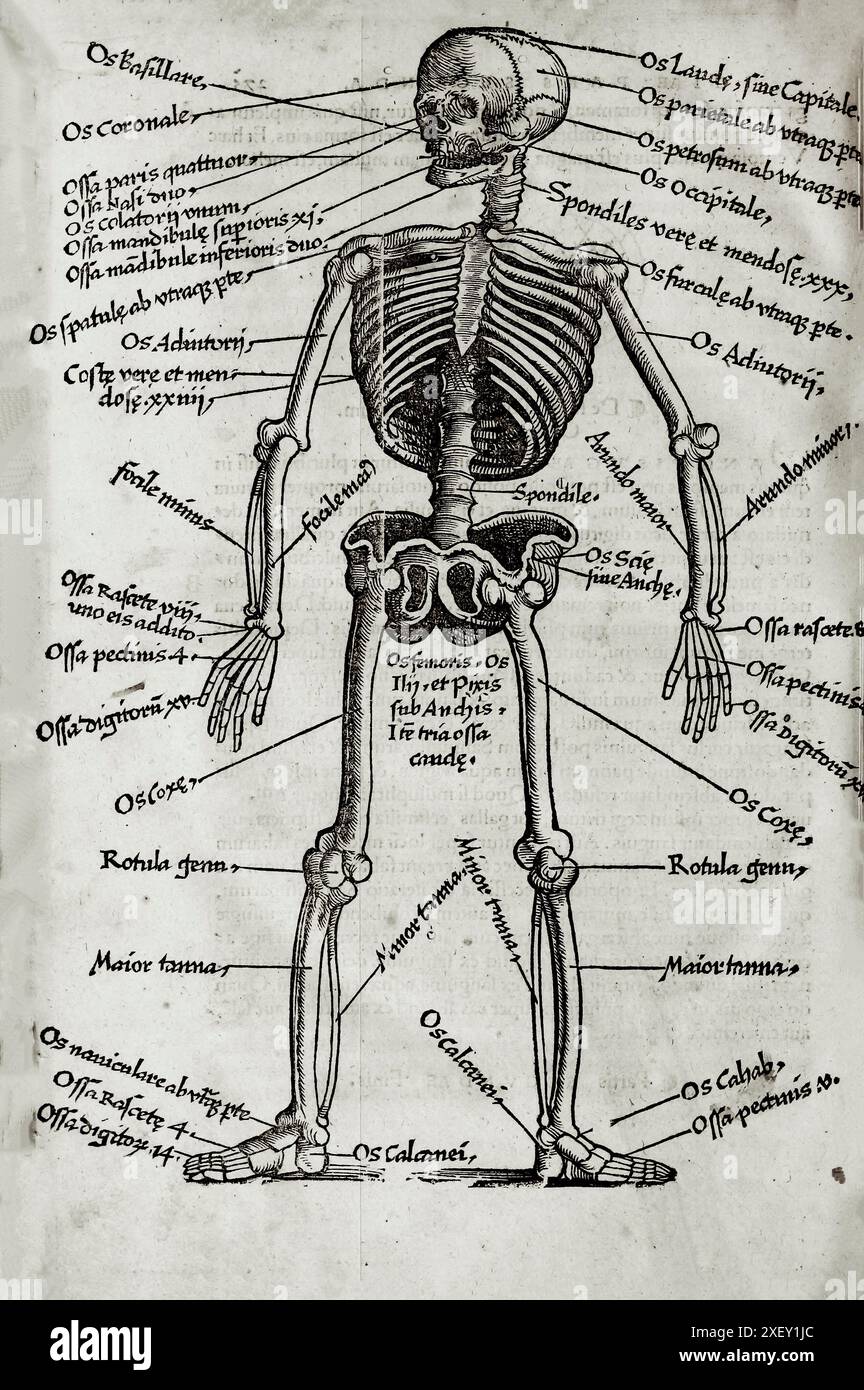 Os Basillare,
Os Coronale,
Ossa paris quattuor,
Ossa Nasi duo,
Os Colatorii vnum,
Ossa mandibulę superioris xi,
Ossa mādibule inferioris duo.
Os spatulę ab vtraqꝫ pte,
Os Adiutorii,
Costę verę et men-
dosę. xxiiii,
focile minus
focile maꝰ
Ossa Rascete viii,
uno eis addito.
Ossa pectinis 4.
Ossa digitorū xv.
Os Coxę,
Rotula genu,
Maior tanna,
Minor tanna,
Os naviculare ab vtraqꝫ pte
Ossa Rascetę 4.
Ossa digitoꝝ. 14.
Os Calcanei,
Os Laudę, siue Capitale.
Os parietale ab vtraqꝫ pte
Os petrosum ab vtraqꝫ pte
Os Occipitale,
Spondiles verę et mendosę. xxx,
Os furculę ab vtraqꝫ pte.
Os Adiutorii,
Arundo maior
Arundo minor,
Spondile.
Os Scię
siue Anchę.
Os femoris. Os
Ilij. et Pixis
sub Anchis.
Itē tria ossa
caudę.
Ossa rascete 8
Ossa pectinis 4
Ossa digitorū xv
Os Coxę,
Minor tanna,
Rotula genu,
Maior tanna,
Os Calcanei,
Os Cahab,
Ossa pectinis v.
alamy
Image ID: 2XEY1JC
www.alamy.com